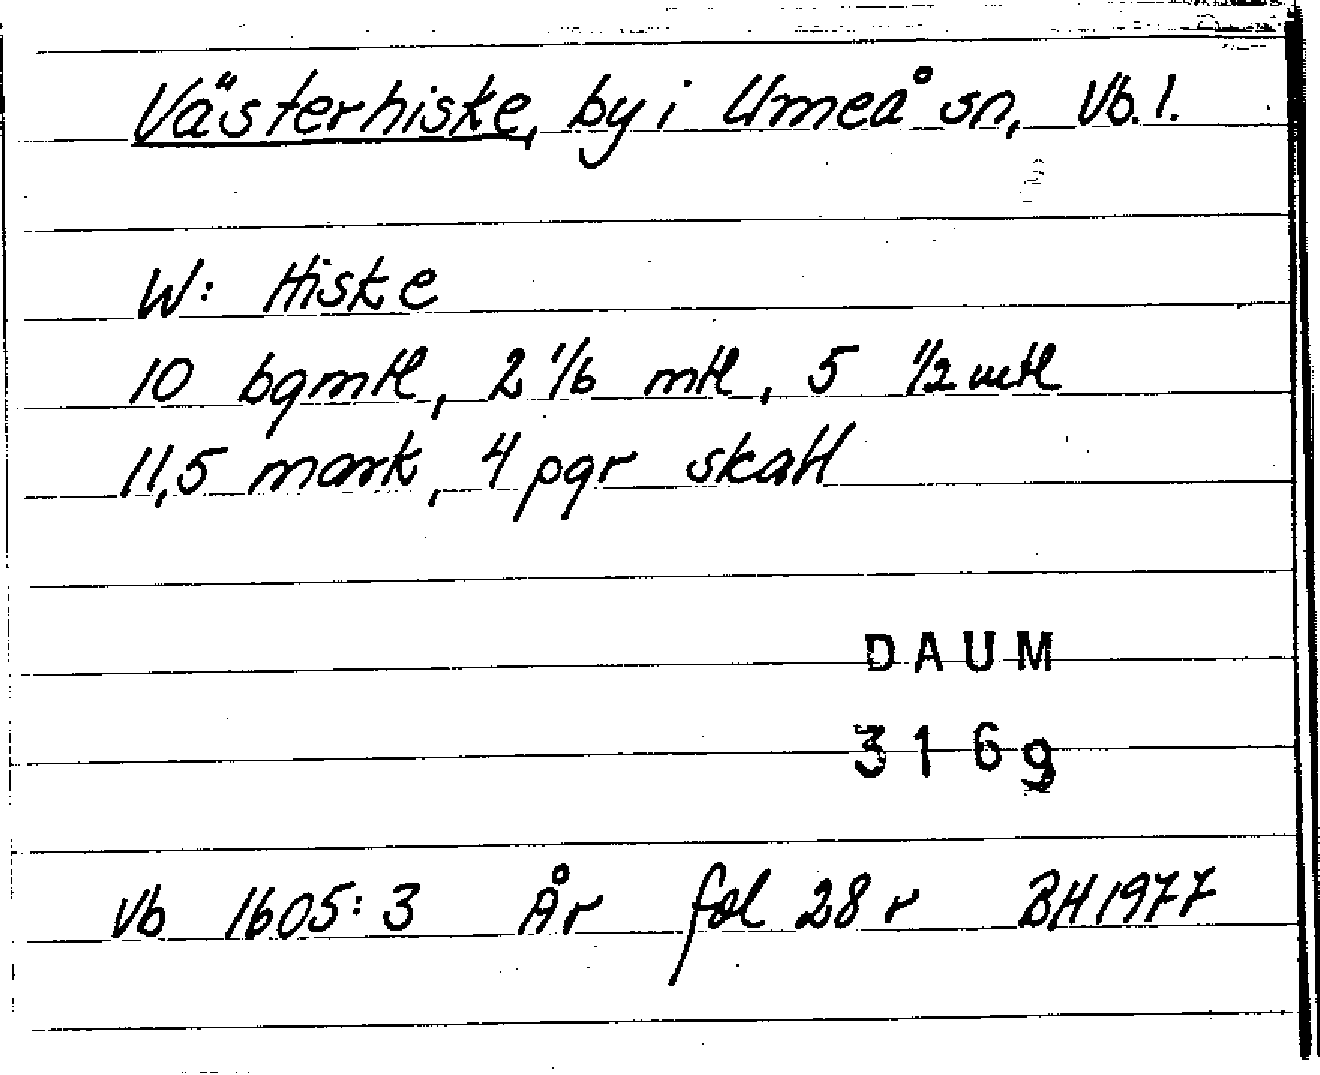 Västerhiske, by i Umeå sn, Vb. l.
W: Hiske
10 bgmtl, 2 1/6 mtl, 5 1/2 mtl
11,5 mark, 4 pgr skatt
DAUM
3169
Vb 1605:3 År fol 28 r BH 1977